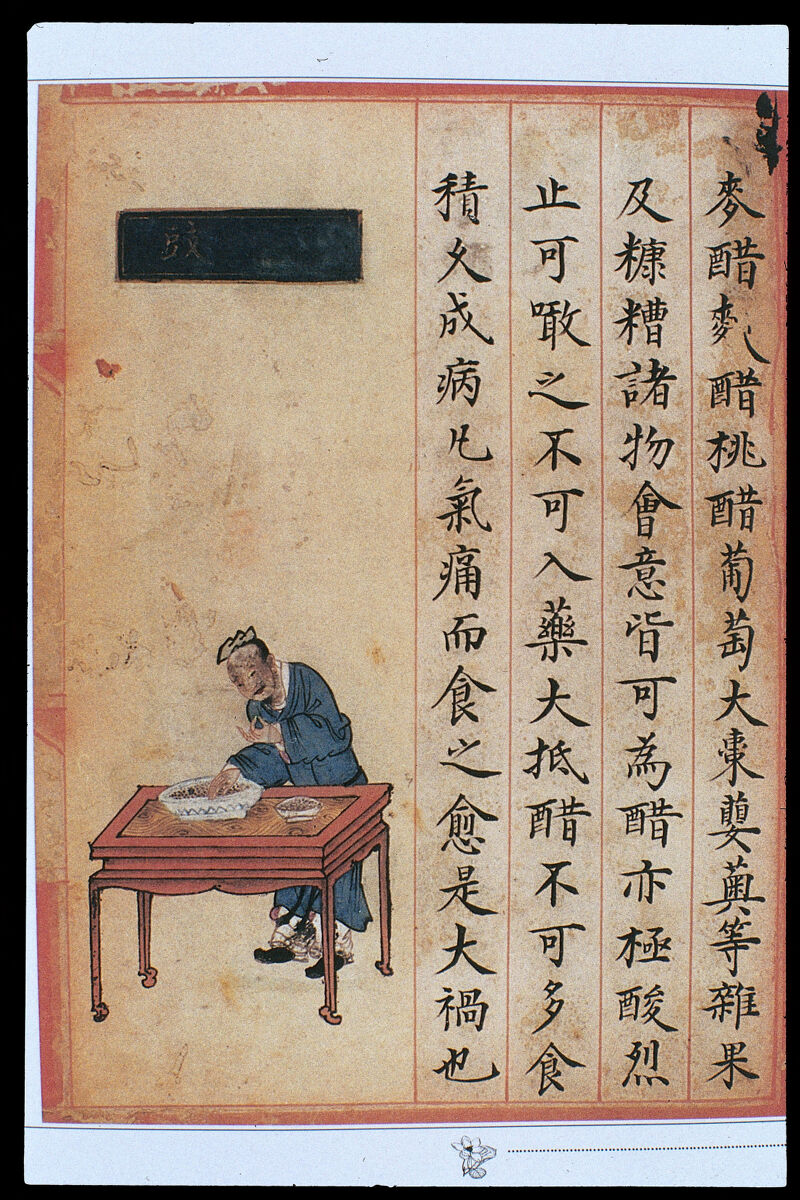 麥醋醋桃醋葡萄大棗蘡薁等雜果
及糠糟諸物會意皆可為醋亦極酸烈
止可噉之不可入藥大抵醋不可多食
積久成病凡氣痛而食之愈是大禍也
豉